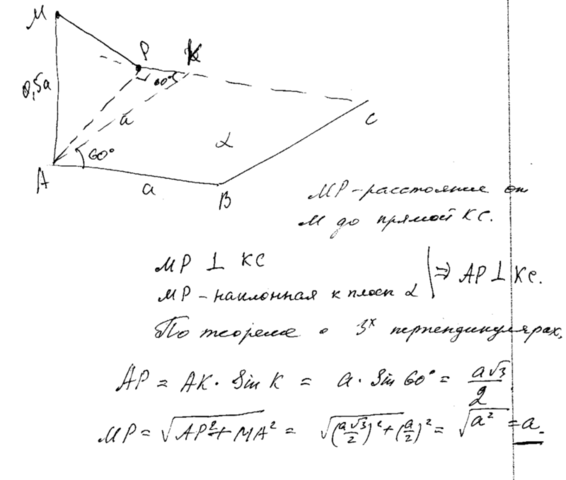 M
P
K
60°
0,5a
a
α
C
60°
A
a
B
MP - расстояние от
M до прямой KC.
MP ⊥ KC
MP - наклонная к плоск α
⇒ AP ⊥ KC.
По теореме о 3х перпендикулярах,
AP = AK · Sin K = a · Sin 60° = a√3/2
MP = √(AP² + MA²) = √((a√3/2)² + (a/2)²) = √a² = a.